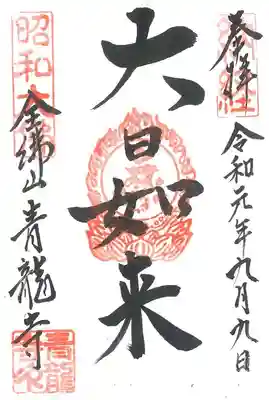 奉拝
令和元年九月九日
大日如来
昭和大
全佛山青龍寺
青龍